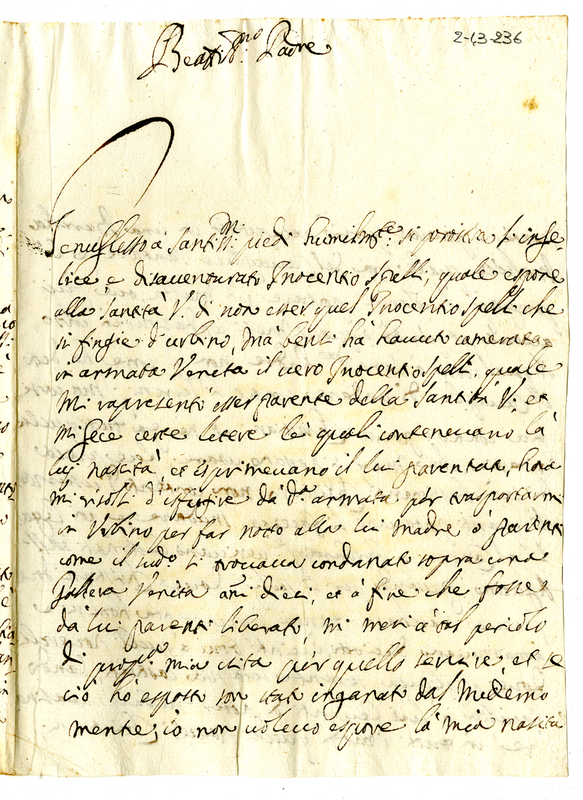 2-13-236
Beatiss.mo Padre
Genuflesso a Santiss.mi piedi humilm.te si prostra l'infe-
lice e disaventurato Inocentio Spelli, quale espone
alla Santità V. di non esser quel Inocentio Spelli che
si fingie d'Urbino, mà bensì hà hauuto camerata
in armata Veneta il uero Inocentio Spelli, quale
mi rapresentò esser parente della Santità V. et
mi fece certe letere le quali conteneuano la
lui nascità, et esprimeuano il lui parentat, hora
mi risolsi d' da d.a armata per trasportarmi
in Urbino per far noto alla lui madre ò parenti
come il sud.o si trouaua condanato sopra una
Galera Veneta ani dieci, et à fine che fosse
dà lui parenti liberato, mi mesi à tal pericolo
di prop.a mia uita per quello seruire, et se
ciò hò esposto son stat inganato dal medemo
mente; io non uoleuo espore la mia nascità